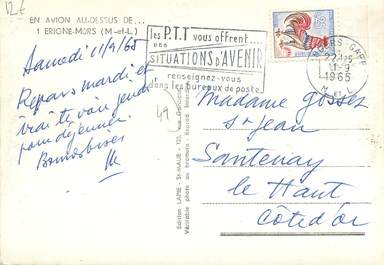 12€
EN AVION AU-DESSUS DE...
1 ERIGNE-MORS (M-et-L.)
Samedi 11/9/65
Repars mardi et
irai te voir jeudi
pour déjeuner.
Bonnes bises
49
les P.T.T vous offrent...
DES
SITUATIONS D'AVENIR
renseignez-vous
dans les bureaux de poste
GARE
1965
Edition LAPIE - St-MAUR
Véritable photo au bromure
Madame Gosset
St Jean
Santenay
le Haut
Côte d'or